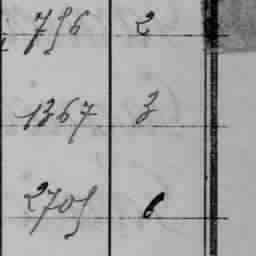 756 2
1367 3
2705 6